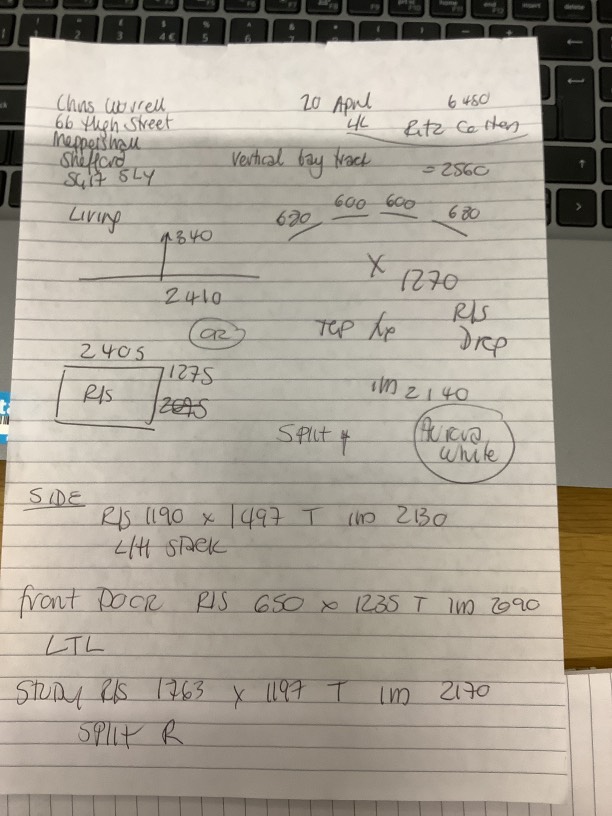 Chris Worrell
66 High Street
Meppershall
Shefford
SG17 5LY
20 April
6480
Vertical bay track
= 2560
Living
340
2410
680 600 600 680
X 1270
OR
R/S
Drop
2405
R/S
1275
im 2140
Split
White
SIDE
R/S 1190 x 1497 T im 2130
L/H STACK
front DOOR R/S 650 x 1235 T im 2090
LTL
STUDY R/S 1763 x 1197 T im 2170
SPlit R